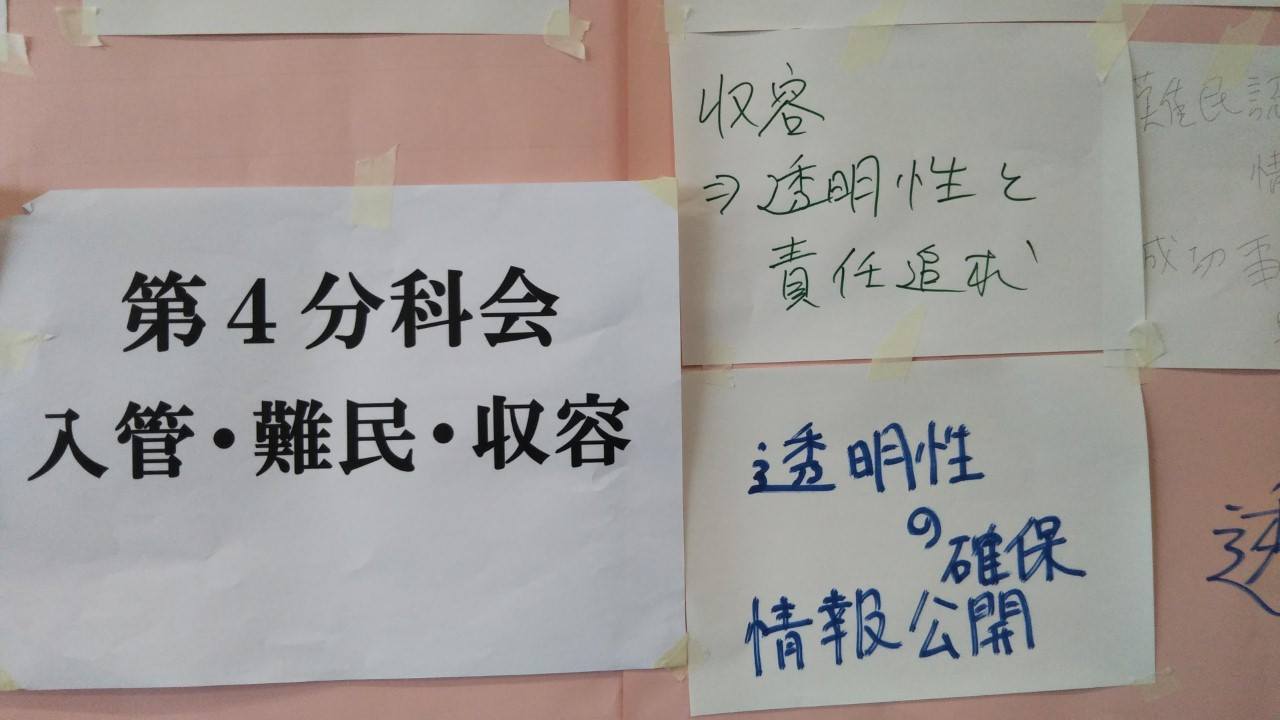 第4分科会
入管・難民・収容
収容
⇒透明性と
責任追求
透明性
の確保
情報公開
難民認
情
成功事
透